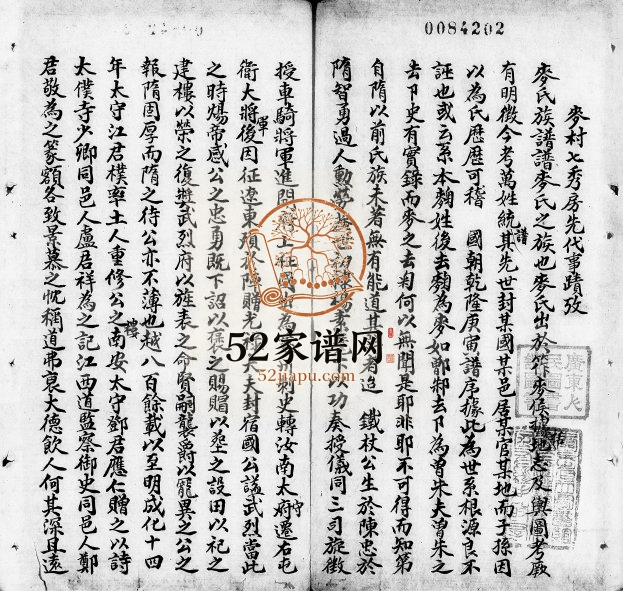 0084202
麥村七秀房先代事蹟攷
麥氏族譜譜麥氏之族也麥氏出於笮麥侯地志及輿圖考厥
有明徵今考萬姓統譜其先世封某國某邑居某官某地而子孫因
以為氏歷歷可稽 國朝乾隆庚寅譜序據此為世系根源良不
誣也或云系本麴姓後去麴為麥如鄫邾去阝為曾朱夫曾朱之
去阝史有實錄而麥之去匊何以無聞是耶非耶不可得而知第
自隋以前氏族未著無有能道其者迨 鐵杖公生於陳忠於
隋智勇過人勳勞以功奏授儀同三司旋徵
授車騎將軍進開府上柱國為刺史轉汝南太守遷右屯
衛大將軍後因征遼東殞於陣贈光祿大夫封宿國公謚武烈當此
之時煬帝感公之忠勇既下詔以葬之賜賵以塟之設田以祀之
建樓以榮之復奬武烈府以旌表之命賢嗣襲爵以寵異之公之
報隋固厚而隋之待公亦不薄也越八百餘載以至明成化十四
年太守江君樸率土人重修公之南樓安太守鄧君應仁贈之以詩
太僕寺少卿同邑人盧君祥為之記江西道監察御史同邑人鄭
君敬為之篆額各致景慕之忱稱道弗衰大德飲人何其深且遠
52家谱网
52jiapu.com